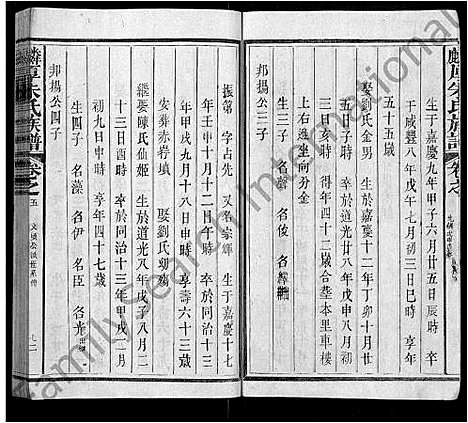 麟厚朱氏族譜 卷之
生于嘉慶九年甲子六月廿五日辰時 卒
于咸豐八年戊午七月初三日巳時 享年
五十五歲
娶劉氏金男 生於嘉慶十二年丁卯十月廿
五日子時 卒於道光廿八年戊申八月初
三日亥時 得年四十二歲合塟本里車樓
上右邊坐向分金
生三子 名俊
邦揚公三子
振第 字占先 又名家輝 生于嘉慶十七
年壬申十月十五日酉時 卒於同治十三
年甲戌九月十八日申時 享壽六十三歲
安葬赤岩塡 娶劉氏
繼娶陳氏仙姬 生於道光八年戊子八月二
十三日戌時 卒於同治十三年甲戌二月
初九日申時 享年四十七歲
生四子 名藻 名伊 名臣 名光
邦揚公四子
麟厚朱氏族譜 卷之五
FamilySearch International